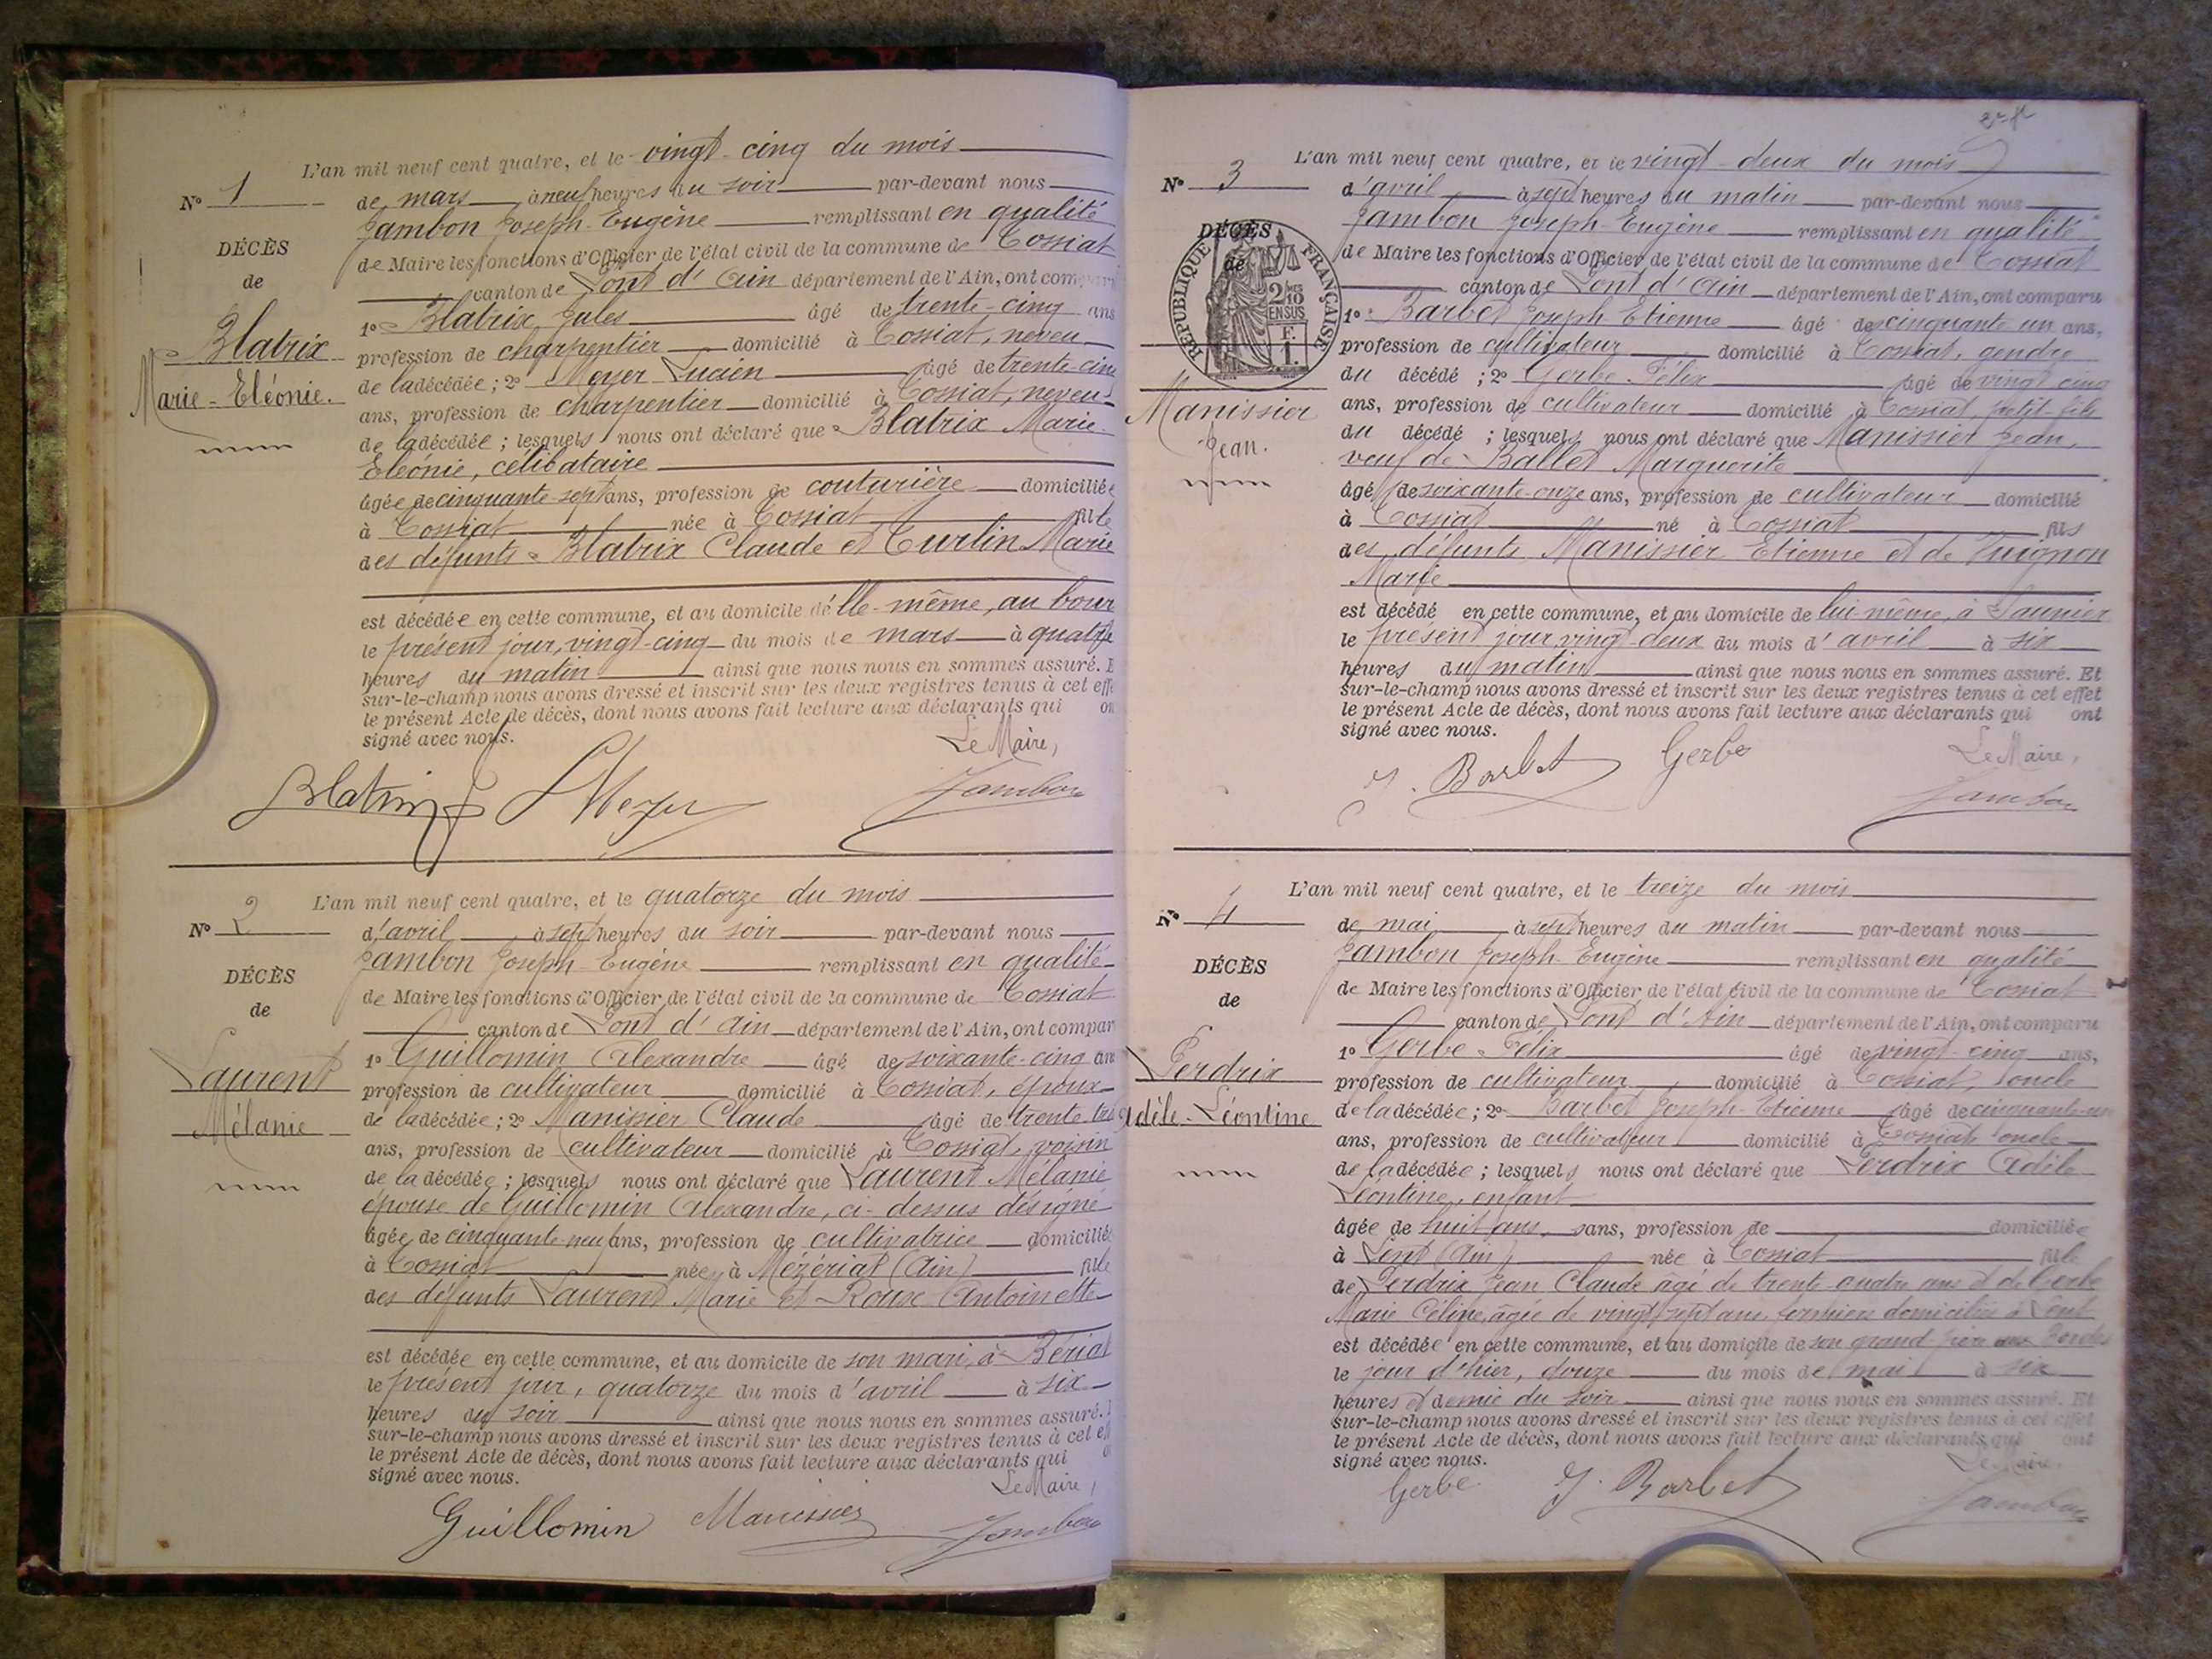 L'an mil neuf cent quatre, et le vingt-cinq du mois
N° 1 de mars à neuf heures du soir par-devant nous
Jambon Joseph-Eugène remplissant en qualité
DÉCÈS
de Maire les fonctions d'Officier de l'état civil de la commune de Tossiat
de
canton de Pont d'Ain département de l'Ain, ont comparu
1° Blatrix Jules âgé de trente-cinq ans
Blatrix
profession de charpentier domicilié à Tossiat, neveu
Marie-Eléonie.
de la décédée ; 2° Meyer Lucien âgé de trente-cinq
ans, profession de charpentier domicilié à Tossiat, neveu
de la décédée ; lesquels nous ont déclaré que Blatrix Marie
Eléonie, célibataire
âgée de cinquante-sept ans, profession de couturière domiciliée
à Tossiat née à Tossiat fille
des défunts Blatrix Claude et Curlin Marie
est décédée en cette commune, et au domicile d'elle-même, au bourg
le présent jour, vingt-cinq du mois de mars à quatre
heures du matin ainsi que nous nous en sommes assuré. E
sur-le-champ nous avons dressé et inscrit sur les deux registres tenus à cet effe
le présent Acte de décès, dont nous avons fait lecture aux déclarants qui on
signé avec nous.
Le Maire,
Blatrix J LMeyer Jambon
L'an mil neuf cent quatre, et le quatorze du mois
N° 2 d'avril à sept heures du soir par-devant nous
Jambon Joseph-Eugène remplissant en qualité
DÉCÈS
de Maire les fonctions d'Officier de l'état civil de la commune de Tossiat
de
canton de Pont d'Ain département de l'Ain, ont compar
1° Guillomin Alexandre âgé de soixante-cinq an
Laurent
profession de cultivateur domicilié à Tossiat, époux
Mélanie
de la décédée ; 2° Manissier Claude âgé de trente
ans, profession de cultivateur domicilié à Tossiat, voisin
de la décédée ; lesquels nous ont déclaré que Laurent Mélanie
épouse de Guillomin Alexandre, ci-dessus désigné
âgée de cinquante-neuf ans, profession de cultivatrice domiciliée
à Tossiat née à Mézériat (Ain) fille
des défunts Laurent Marie et Roux Antoinette
est décédée en cette commune, et au domicile de son mari, à Bériat
le présent jour, quatorze du mois d'avril à six
heures du soir ainsi que nous nous en sommes assuré.
sur-le-champ nous avons dressé et inscrit sur les deux registres tenus à cet eff
le présent Acte de décès, dont nous avons fait lecture aux déclarants qui o
signé avec nous.
Le Maire,
Guillomin Manissier Jambon
L'an mil neuf cent quatre, et le vingt-deux du mois
N° 3 d'avril à sept heures du matin par-devant nous
Jambon Joseph-Eugène remplissant en qualité
DÉCÈS
de Maire les fonctions d'Officier de l'état civil de la commune de Tossiat
de
RÉPUBLIQUE FRANÇAISE
2/10
EN SUS
F.
1.
canton de Pont d'Ain département de l'Ain, ont comparu
1° Barbet Joseph-Etienne âgé de cinquante un ans,
profession de cultivateur domicilié à Tossiat, gendre
du décédé ; 2° Gerbe Félix âgé de vingt cinq
Manissier
ans, profession de cultivateur domicilié à Tossiat, petit-fils
Jean.
du décédé ; lesquels nous ont déclaré que Manissier Jean,
veuf de Ballet Marguerite
âgé de soixante-onze ans, profession de cultivateur domicilié
à Tossiat né à Tossiat fils
des défunts Manissier Etienne et de Vuignon
Marie
est décédé en cette commune, et au domicile de lui-même, à Saunier
le présent jour vingt-deux du mois d'avril à six
heures du matin ainsi que nous nous en sommes assuré. Et
sur-le-champ nous avons dressé et inscrit sur les deux registres tenus à cet effet
le présent Acte de décès, dont nous avons fait lecture aux déclarants qui ont
signé avec nous.
Le Maire,
J. Barbet Gerbe Jambon
L'an mil neuf cent quatre, et le treize du mois
N° 4 de mai à sept heures du matin par-devant nous
Jambon Joseph-Eugène remplissant en qualité
DÉCÈS
de Maire les fonctions d'Officier de l'état civil de la commune de Tossiat
de
canton de Pont d'Ain département de l'Ain, ont comparu
1° Gerbe Félix âgé de vingt-cinq ans,
Perdrix
profession de cultivateur domicilié à Tossiat, oncle
Adèle-Léontine
de la décédée ; 2° Barbet Joseph-Etienne âgé de cinquante-un
ans, profession de cultivateur domicilié à Tossiat oncle
de la décédée ; lesquels nous ont déclaré que Perdrix Adèle
Léontine, enfant
âgée de huit ans, sans, profession de domiciliée
à Lent (Ain) née à Tossiat fille
de Perdrix Jean Claude âgé de trente-quatre ans et de Gerbe
Marie Céline, âgée de vingt-sept ans, fermiers domiciliés à Lent
est décédée en cette commune, et au domicile de son grand père aux
le jour d'hier, douze du mois de mai à six
heures et demie du soir ainsi que nous nous en sommes assuré. Et
sur-le-champ nous avons dressé et inscrit sur les deux registres tenus à cet effet
le présent Acte de décès, dont nous avons fait lecture aux déclarants qui ont
signé avec nous.
Le Maire,
Gerbe J. Barbet Jambon